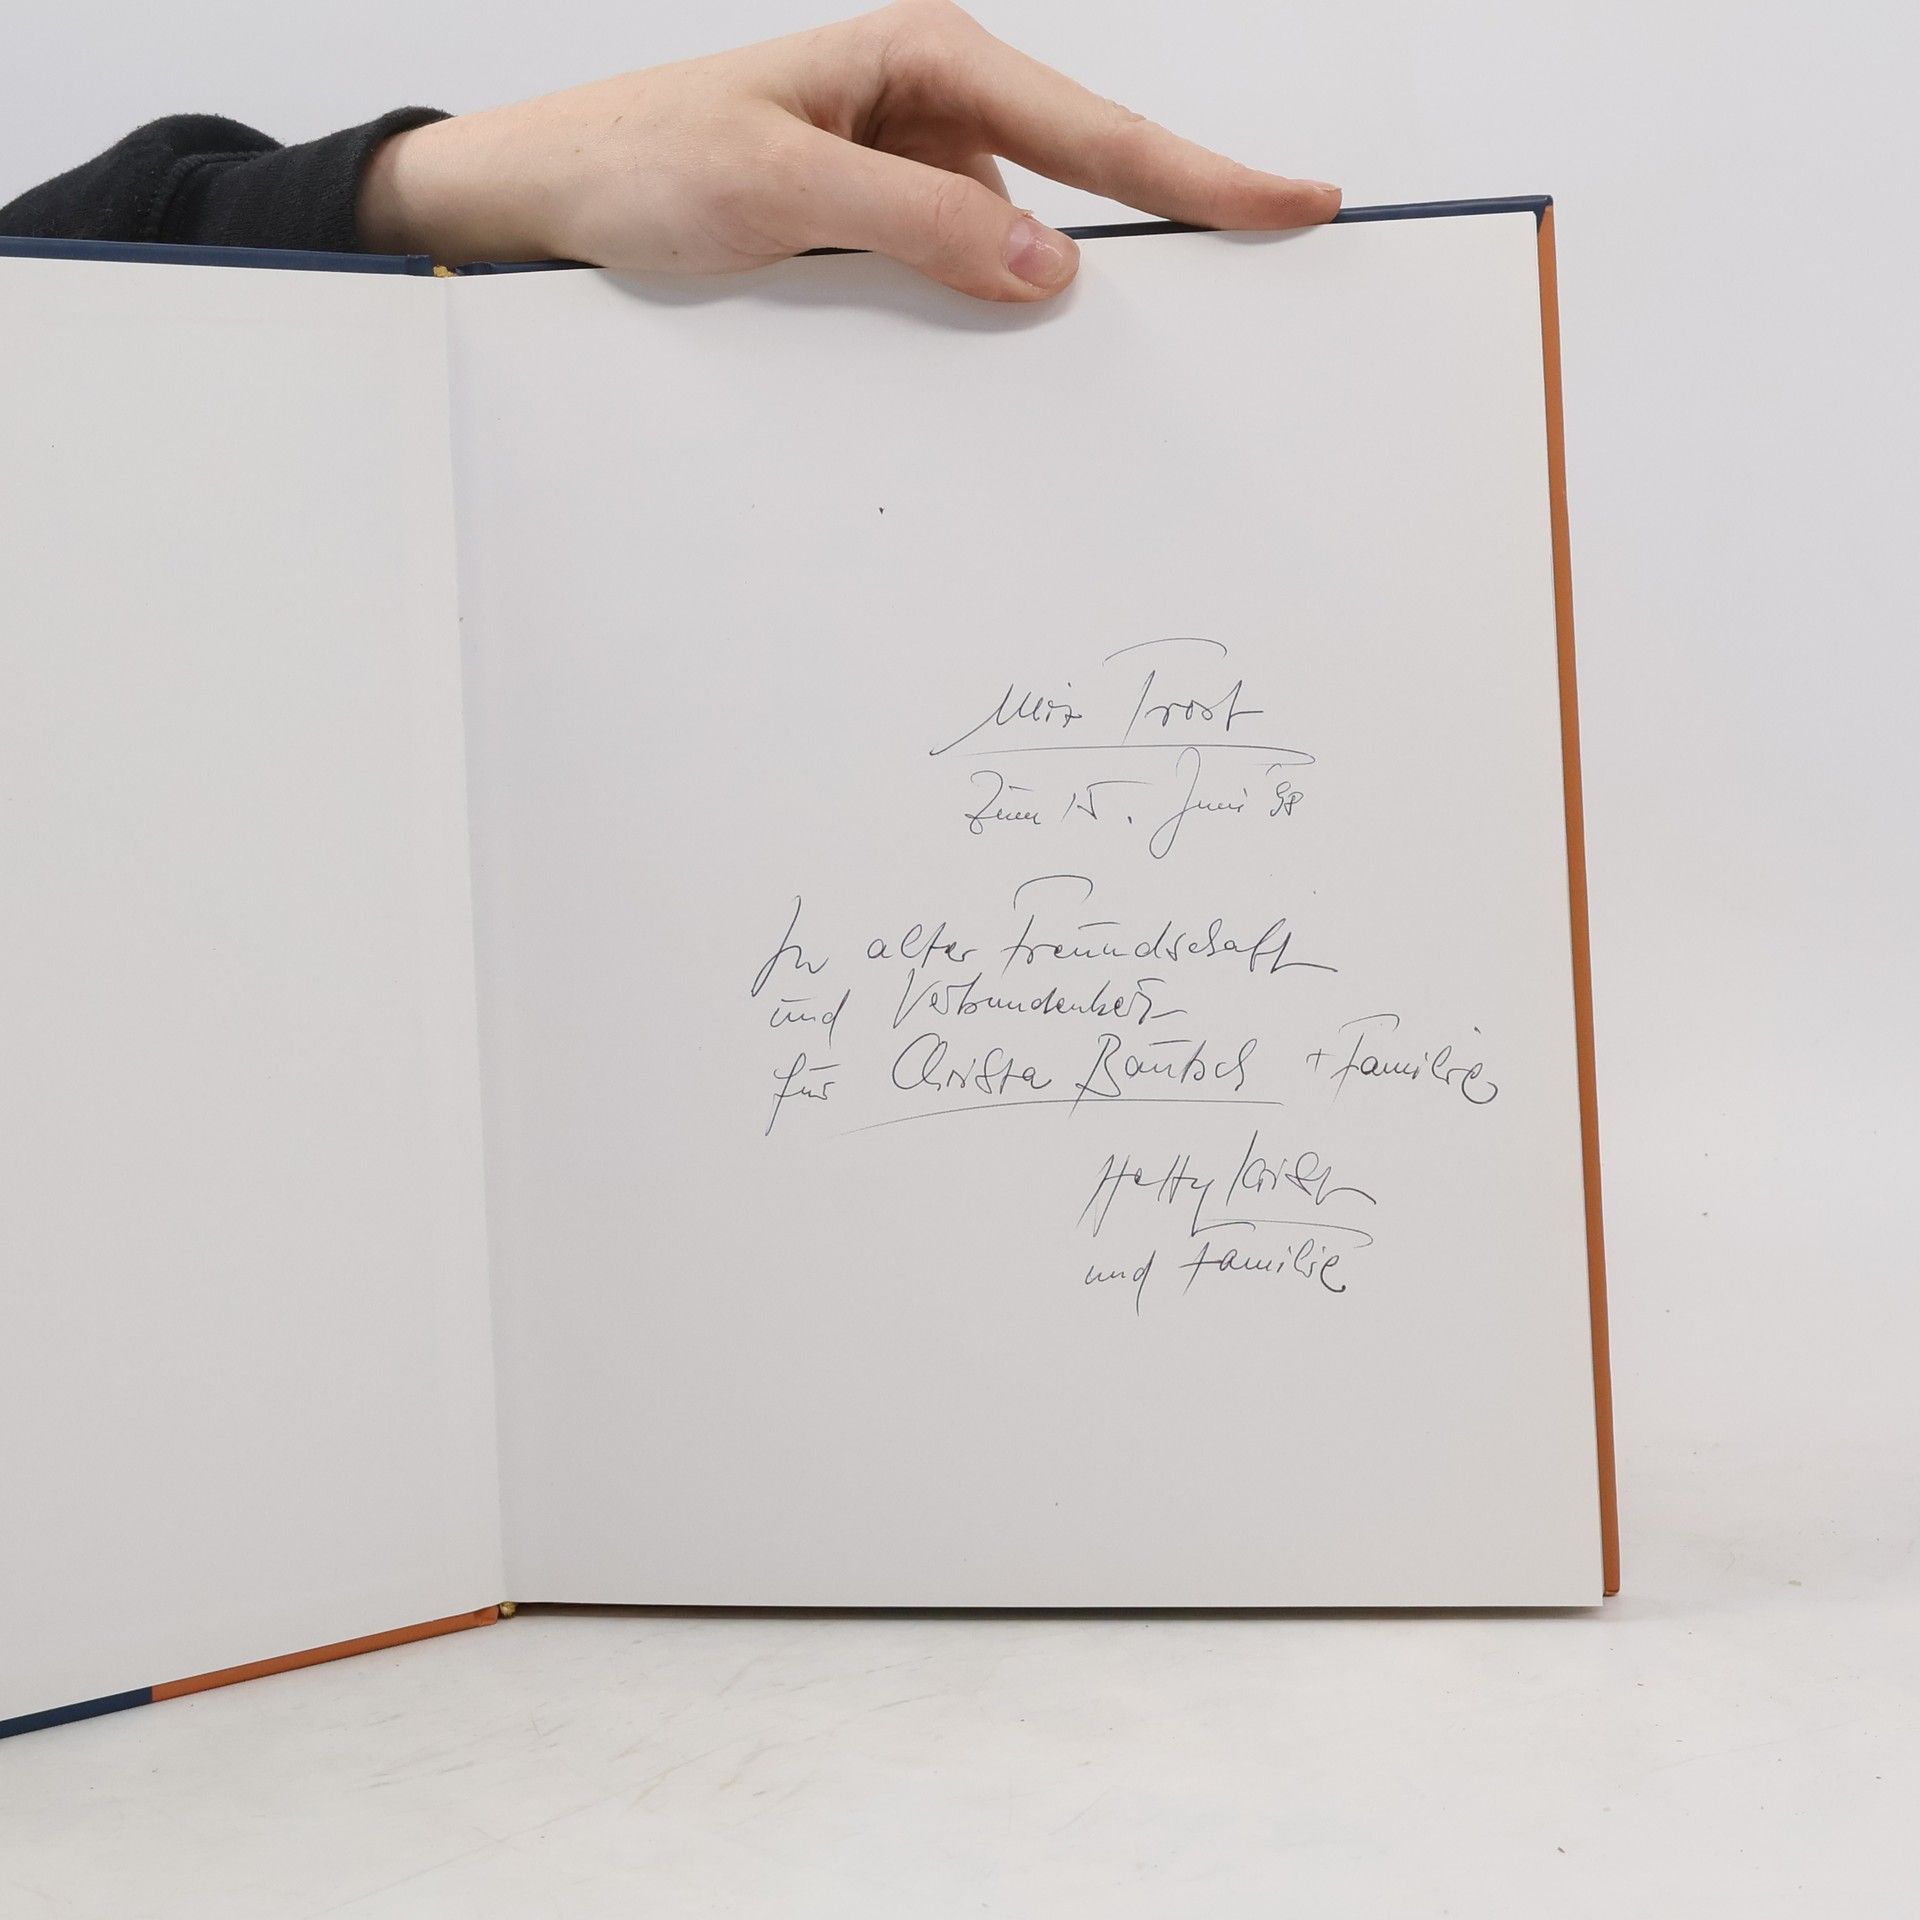 Mix Trost
Zum 15. Juni 98
In alter Freundschaft
und Verbundenheit
für Christa Bautsch + Familie
Hetty Krist
und Familie